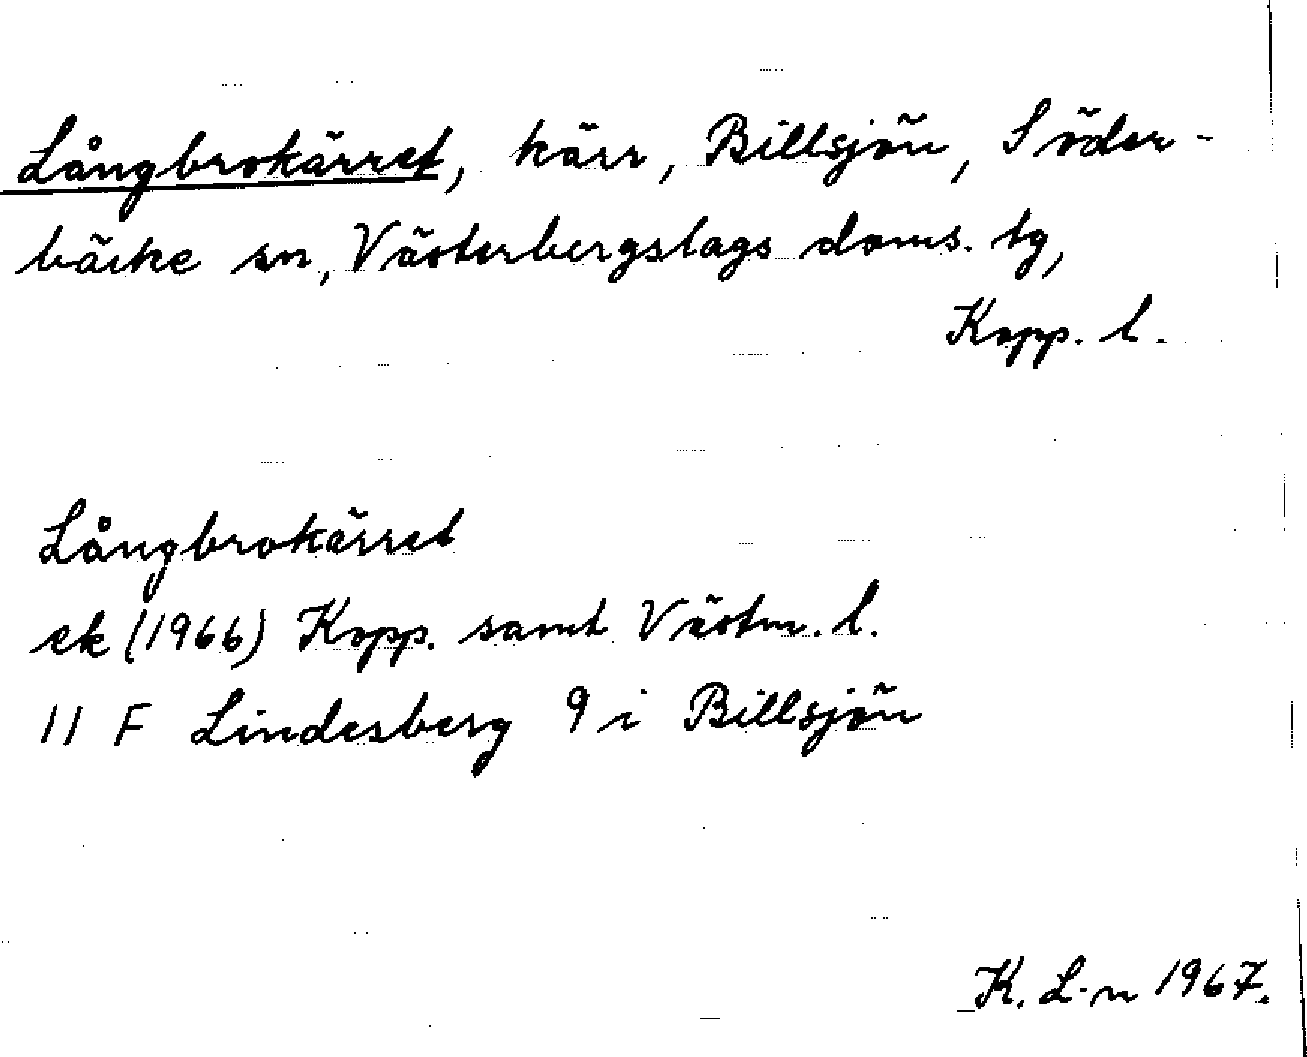 Långbrokärret, kärr, Billsjön, Söder-
bärke sn, Västerbergslags doms. tg,
Kopp. l.
Långbrokärret
ek (1966) Kopp. samt Västm. l.
11 F Lindesberg 9 i Billsjön
K. L-n 1967.